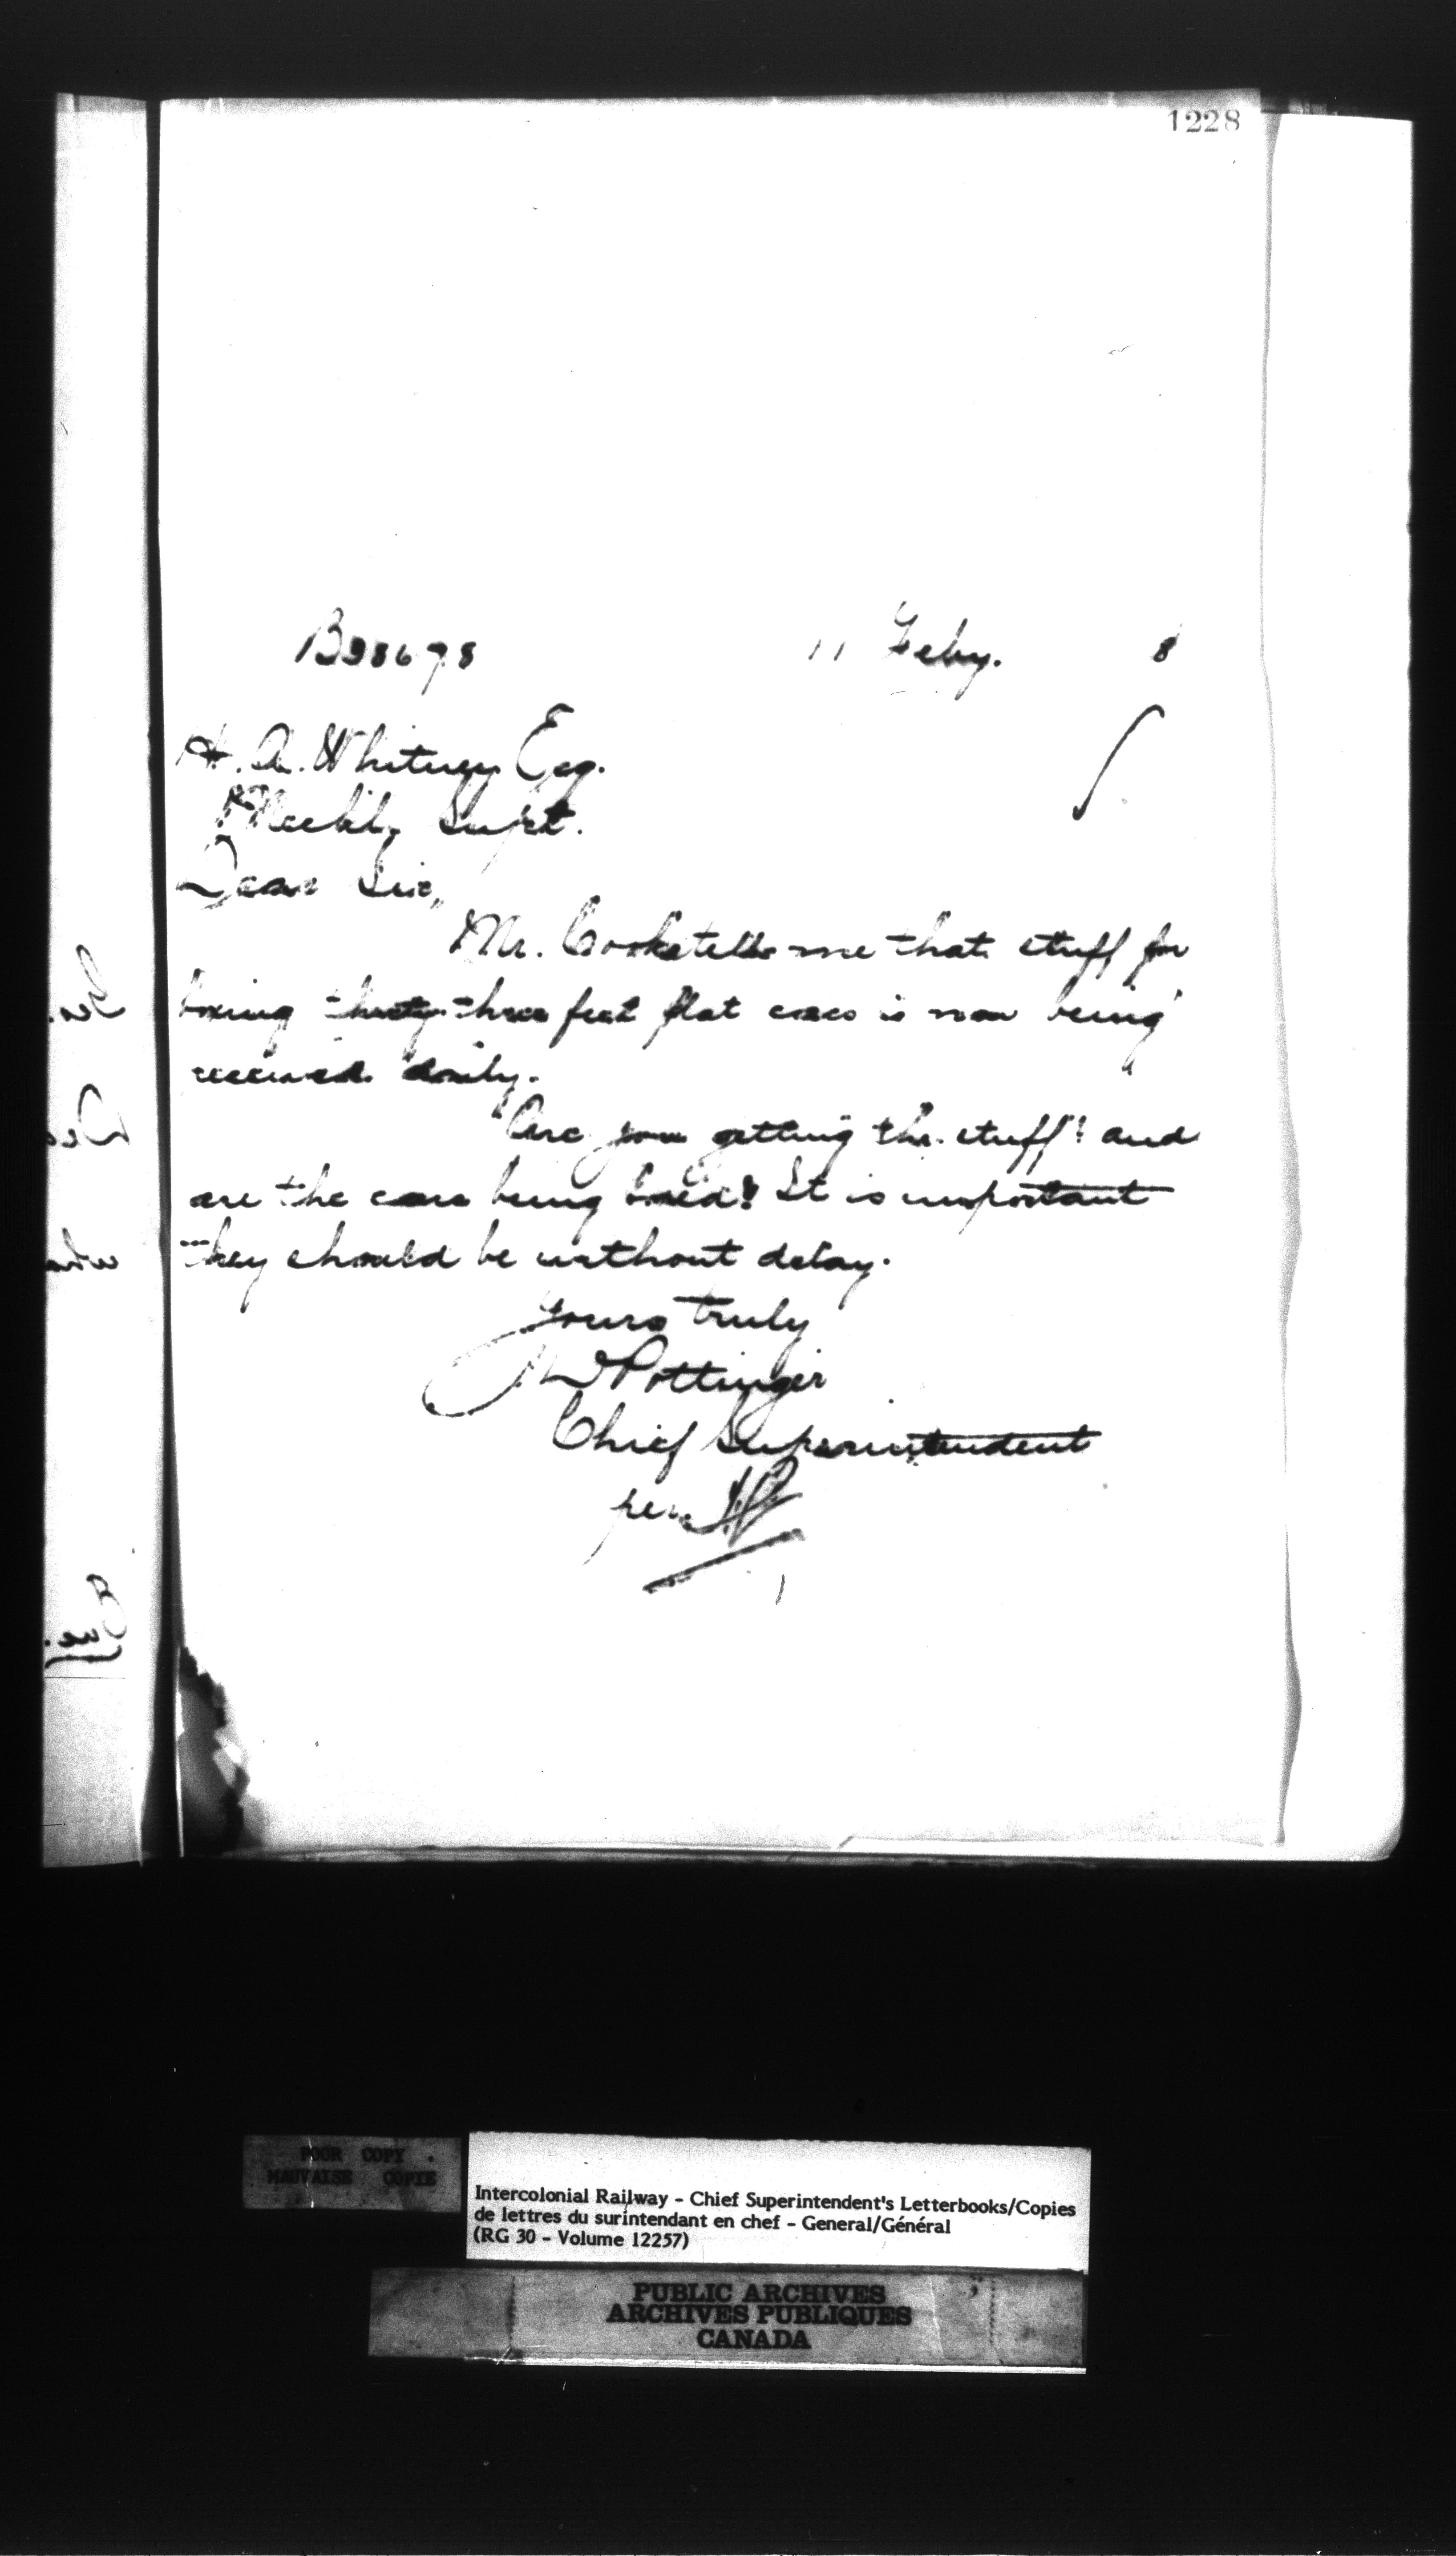 1228
B38698
11 Feby. 8
H. A. Whitney Esq.
Mechl. Supt.
Dear Sir,
Mr. Cooke tells me that stuff for
boxing thirty-three feet flat cars is now being
received daily.
Are you getting the stuff? and
are the cars being boxed? It is important
they should be without delay.
Yours truly
D Pottinger
Chief Superintendent
per
POOR COPY
MAUVAISE COPIE
Intercolonial Railway - Chief Superintendent's Letterbooks/Copies
de lettres du surintendant en chef - General/Général
(RG 30 - Volume 12257)
PUBLIC ARCHIVES
ARCHIVES PUBLIQUES
CANADA